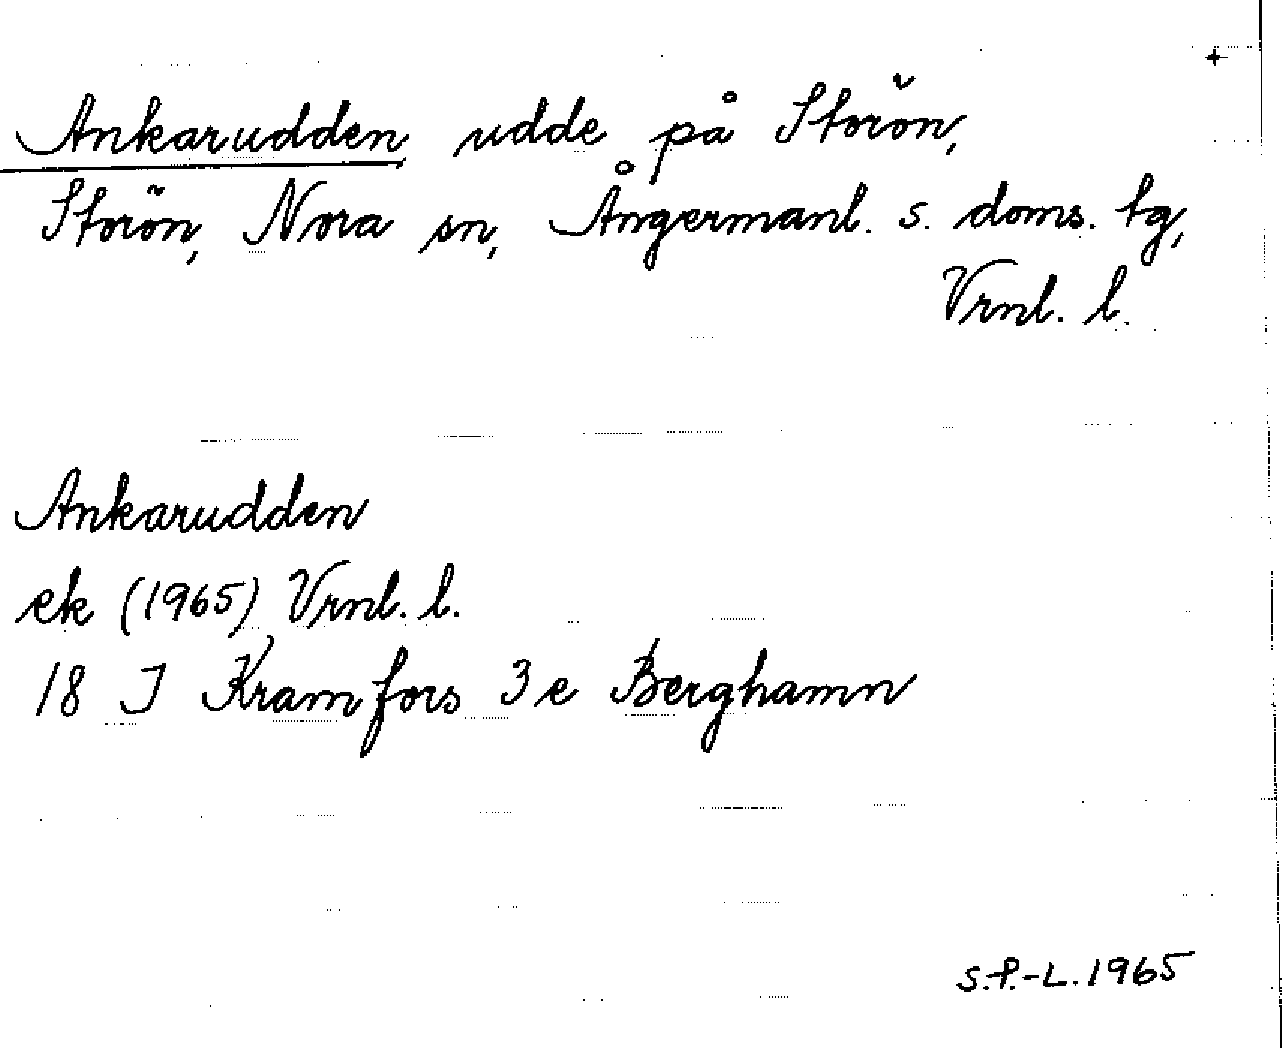 +
Ankarudden, udde på Storön,
Storön, Nora sn, Ångermanl. s. doms. tg,
Vrnl. l.
Ankarudden
ek (1965) Vrnl. l.
18 J Kramfors 3 e Berghamn
S.P.-L. 1965